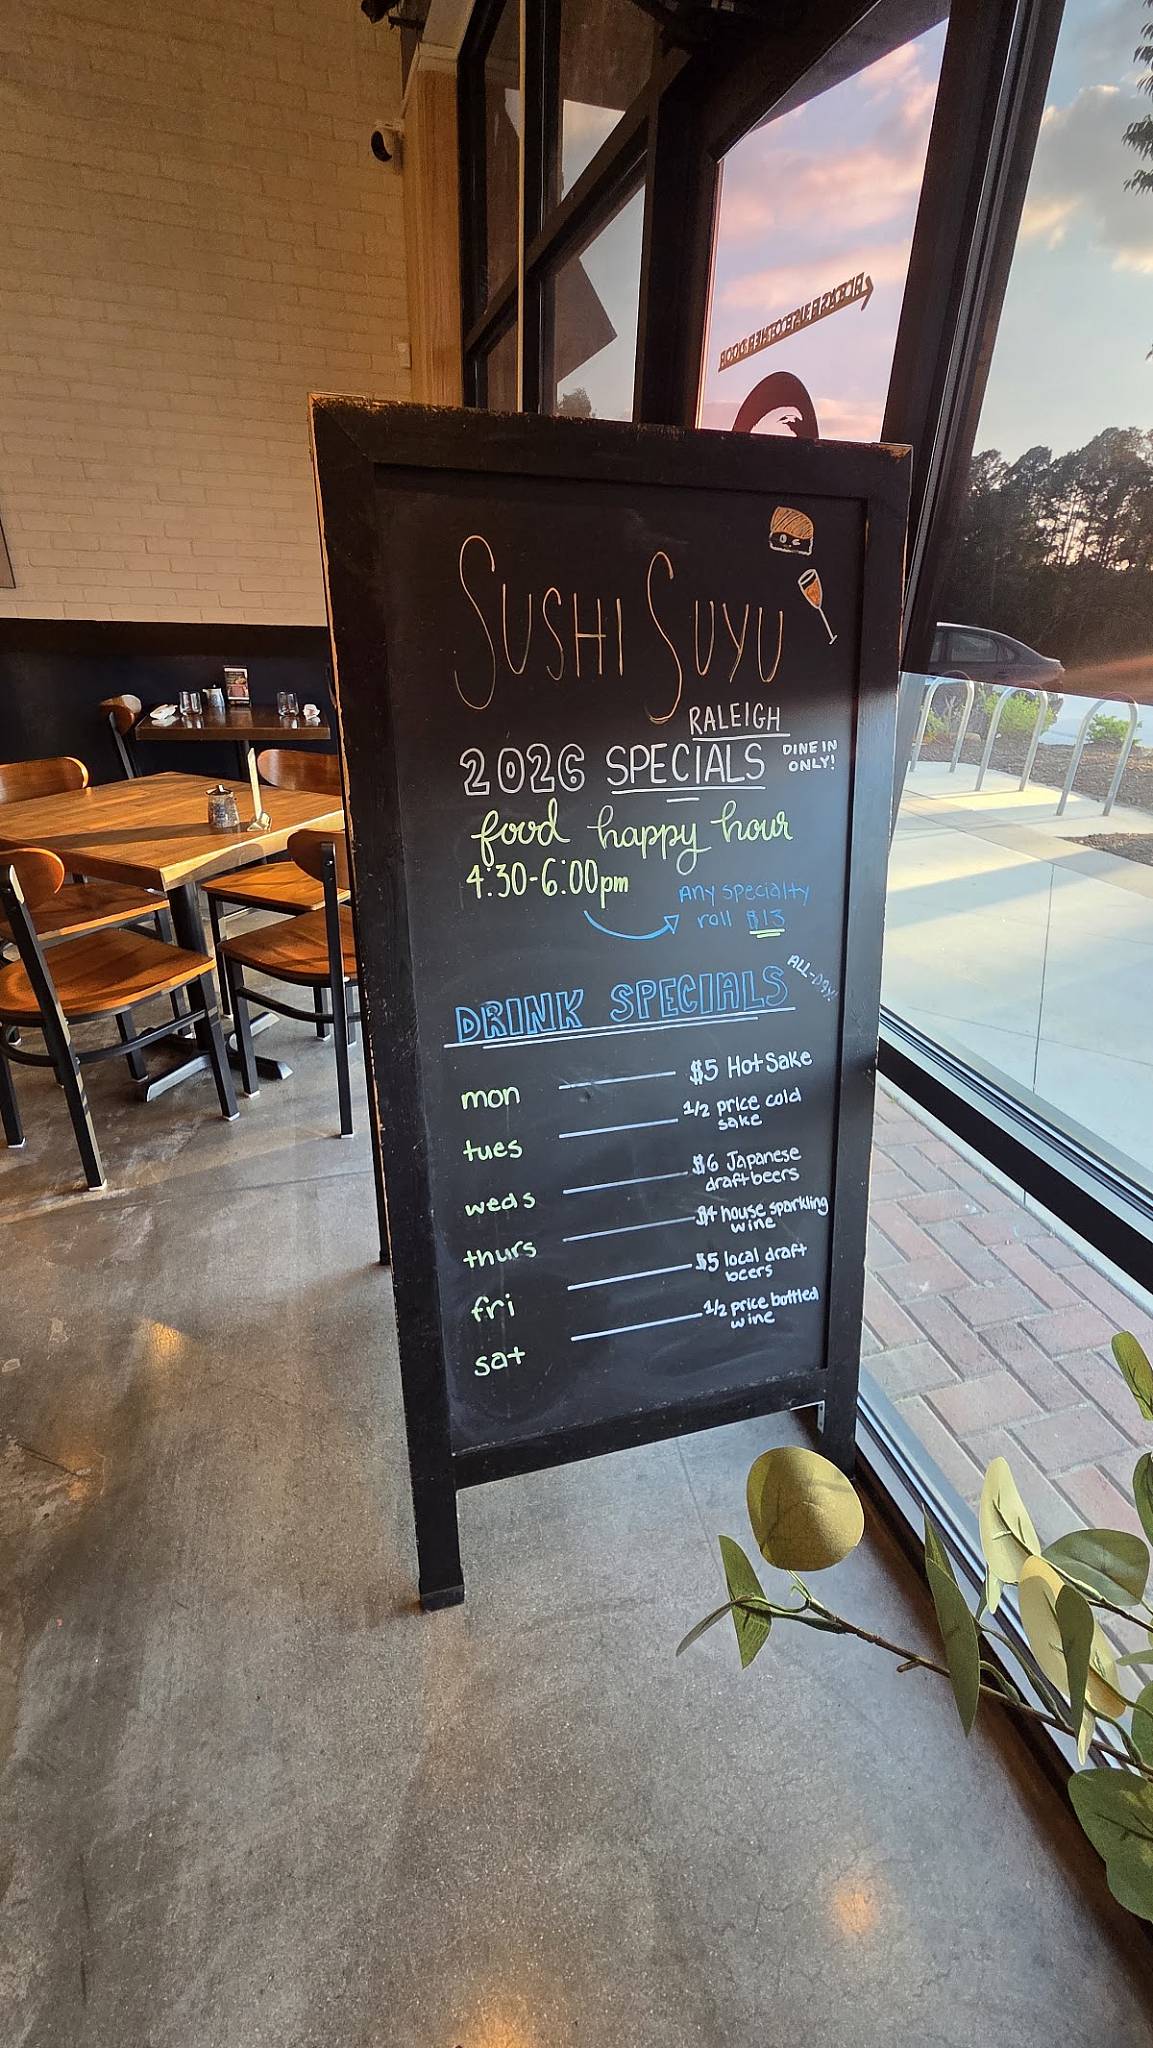 SUSHI SUYU
RALEIGH
2026 SPECIALS DINE IN
ONLY!
food happy hour
4:30-6:00pm
Any specialty
roll $13
DRINK SPECIALS ALL-DAY!
mon $5 Hot Sake
tues 1/2 price cold
sake
weds $6 Japanese
draft beers
thurs $4 house sparkling
wine
fri $5 local draft
beers
sat 1/2 price bottled
wine